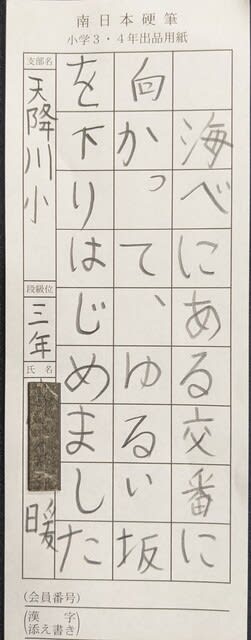 南日本硬筆
小学3・4年出品用紙
海べにある交番に
向かって、ゆるい坂
を下りはじめました
支部名
天降川小
段級位
三年
氏名
暖
(会員番号)
(漢字
添え書き)